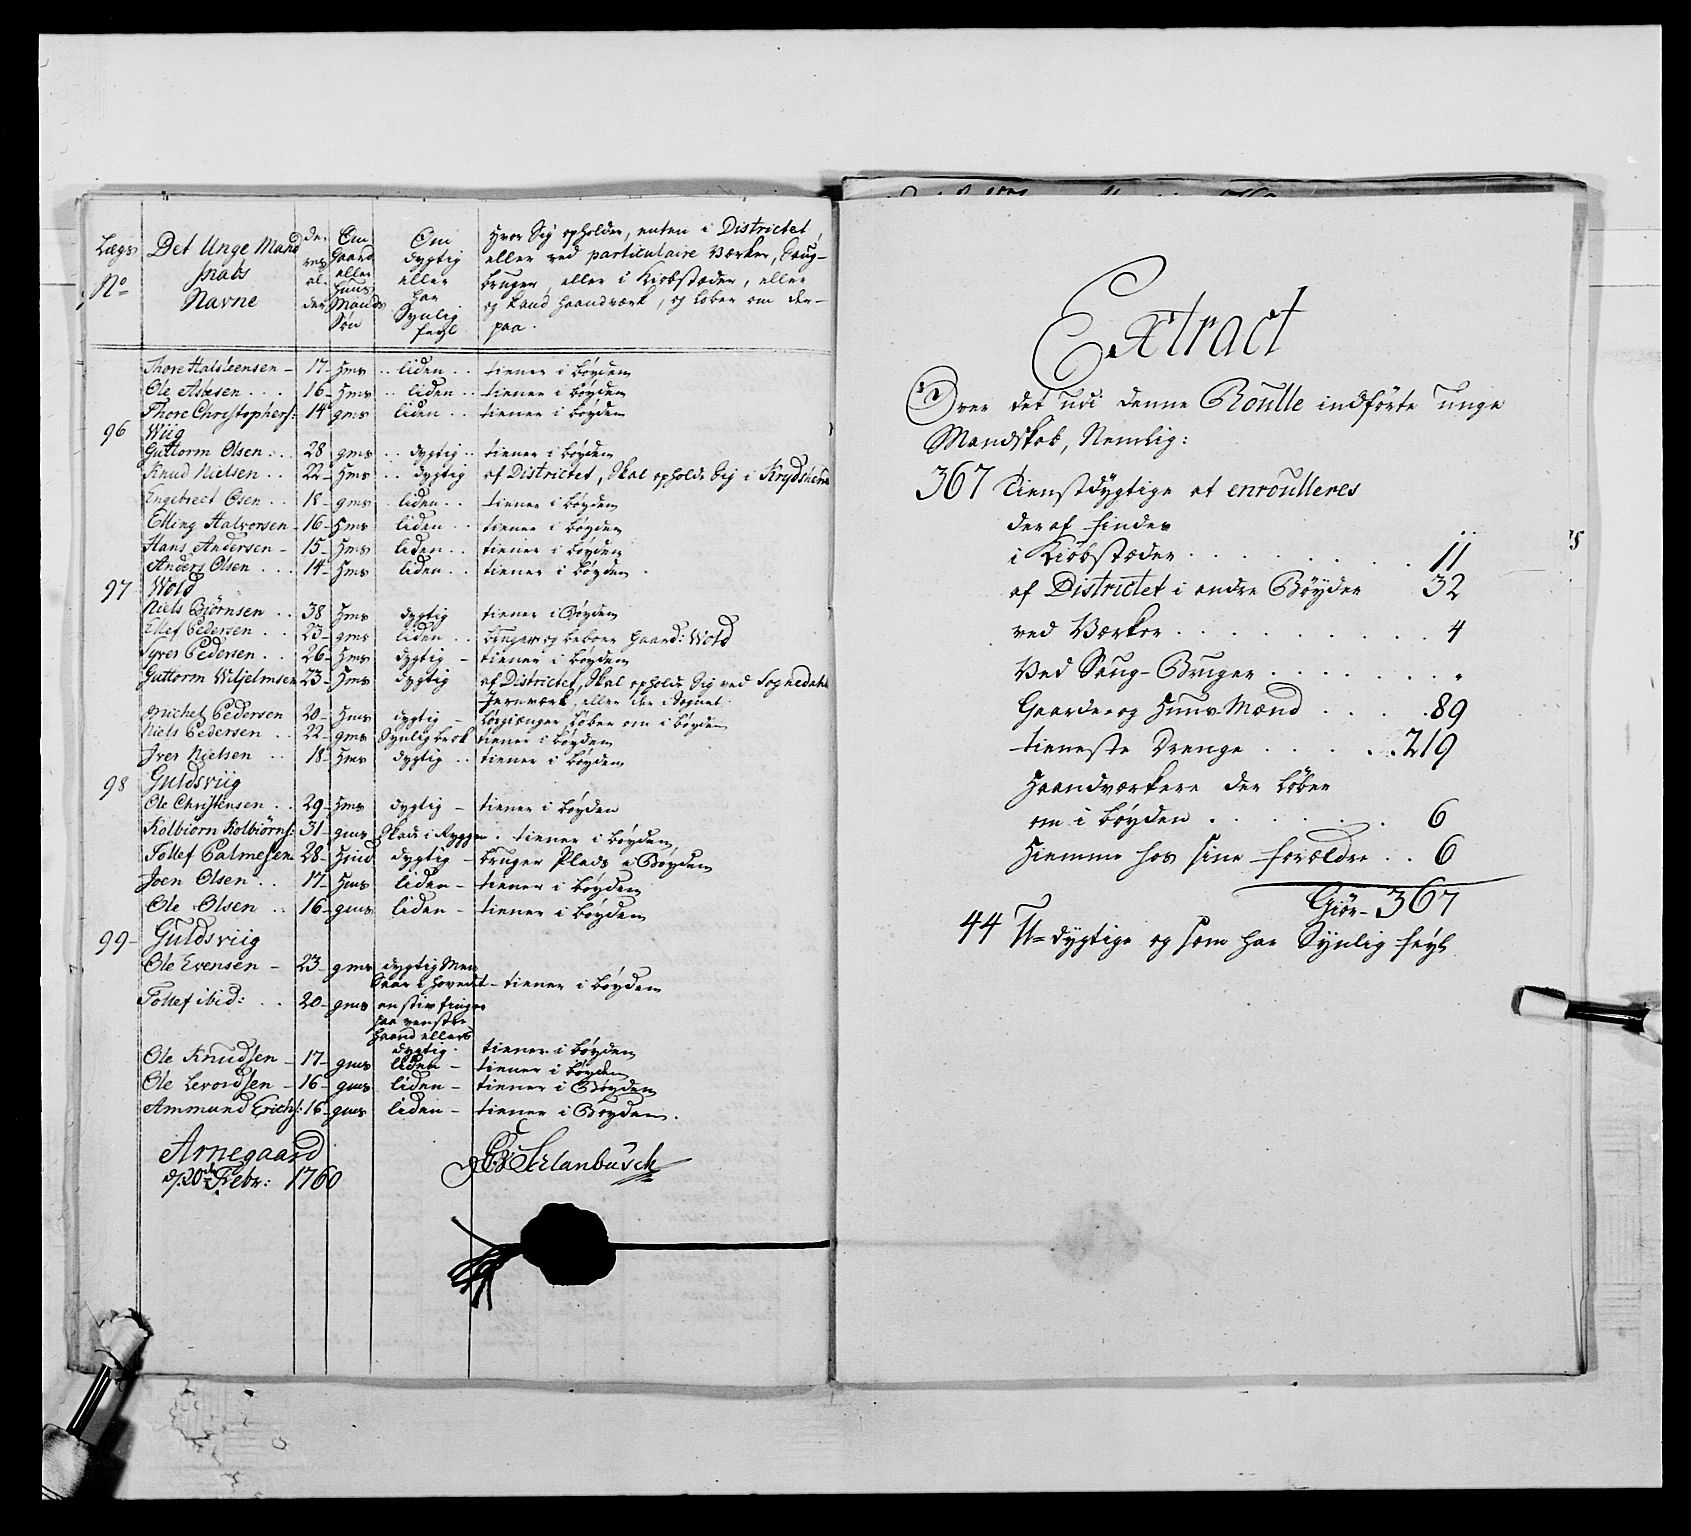 Lægs No
Det Unge Mand skabs Navne
de res al der
Om Gaard eller Huus Mands Søn
Om dygtig eller har Synlig feyl
Hvor Sig opholder, enten i Districtet,
eller ved particulaire Værker, Saug-
bruger, eller i Kiøbstæder, eller
og kand Haandværk, og løber om der-
paa.
Thore Halsteensen - 17 - Hms .. liden .. tiener i bøyden
Ole Aslesen ... 16 - Hms .. liden .. tiener i bøyden
Thore Christophers: 14 gms liden .. tiener i bøyden
96 Wiig
Guttorm Olsen ... 28 gms .. dygtig .. tiener i bøyden
Knud Nielsen .. 22 - Hms .. dygtig af Districtet, skal opholde Sig i
Engebrect Olsen .. 18 - gms . liden .. tiener i bøyden
Elling Halvorsen - 16 - Hms liden .. tiener i bøyden
Hans Andersen - 15 - Hms liden .. tiener i bøyden
Anders Olsen ... 14 - Hms liden .. tiener i bøyden .
97 Wold
Niels Biørnsen .. 38 Hms dygtig tiener i Bøyden
Ellef Pedersen .. 23 - gms liden .. bruger og beboer Gaard: Wold
Syver Pedersen ... 26 - Hms dygtig - tiener i bøyden
Guttorm Wiljelmsen 23 - Hms dygtig af Districtet, skal opholde Sig ved
Jernværk, eller der i Sognet.
Michel Pedersen 20 - Hms dygtig - løsgiænger, løber om i bøyden
Niels Pedersen .. 22 - gms Synlig brok tiener i bøyden
Iver Nielsen .. 18 - Hms dygtig .. tiener i bøyden
98 Guldsviig
Ole Christensen .. 29 - Hms dygtig - tiener i bøyden
Kolbiørn Kolbiørns: 31 - gms Skade i Ryggen . tiener i bøyden
Tollef Palmesen 28 - Hind dygtig - bruger Plads i Bøyden
Joen Olsen .. 17 - Hms liden - tiener i bøyden
Ole Olsen .. 16 - gms liden - tiener i bøyden
99 - Guldsviig
Ole Evensen - 23 - gms dygtig Men
Saar i hovedet - tiener i bøyden
Tollef ibid: ... 20 - gms en stiv finger
paa venstre
haand ellers
dygtig. tiener i bøyden
Ole Knudsen - 17 - gms liden - tiener i bøyden
Ole Levordsen - 16 - gms liden - tiener i Bøyden
Ammund Erichs: 16 - gms liden - tiener i Bøyden.
Arnegaard
d: 20de Febr: 1760
Extract
Over det udi denne Roulle indførte unge
Mandskab, Nemlig:
367 Tienstdygtige at enroulleres
deraf findes
i Kiøbstæder ....... 11
af Districtet i andre Bøyder 32
ved Værker .......... 4
Ved Saug-Bruger ....... "
Gaarder og Huus Mænd ... 89
tieneste Drenge ..... 219
Haandværkere der løber
om i bøyden ....... 6
Hiemme hos sine forældre .. 6
Giør - 367
44 U=dygtige og som har Synlig feyl